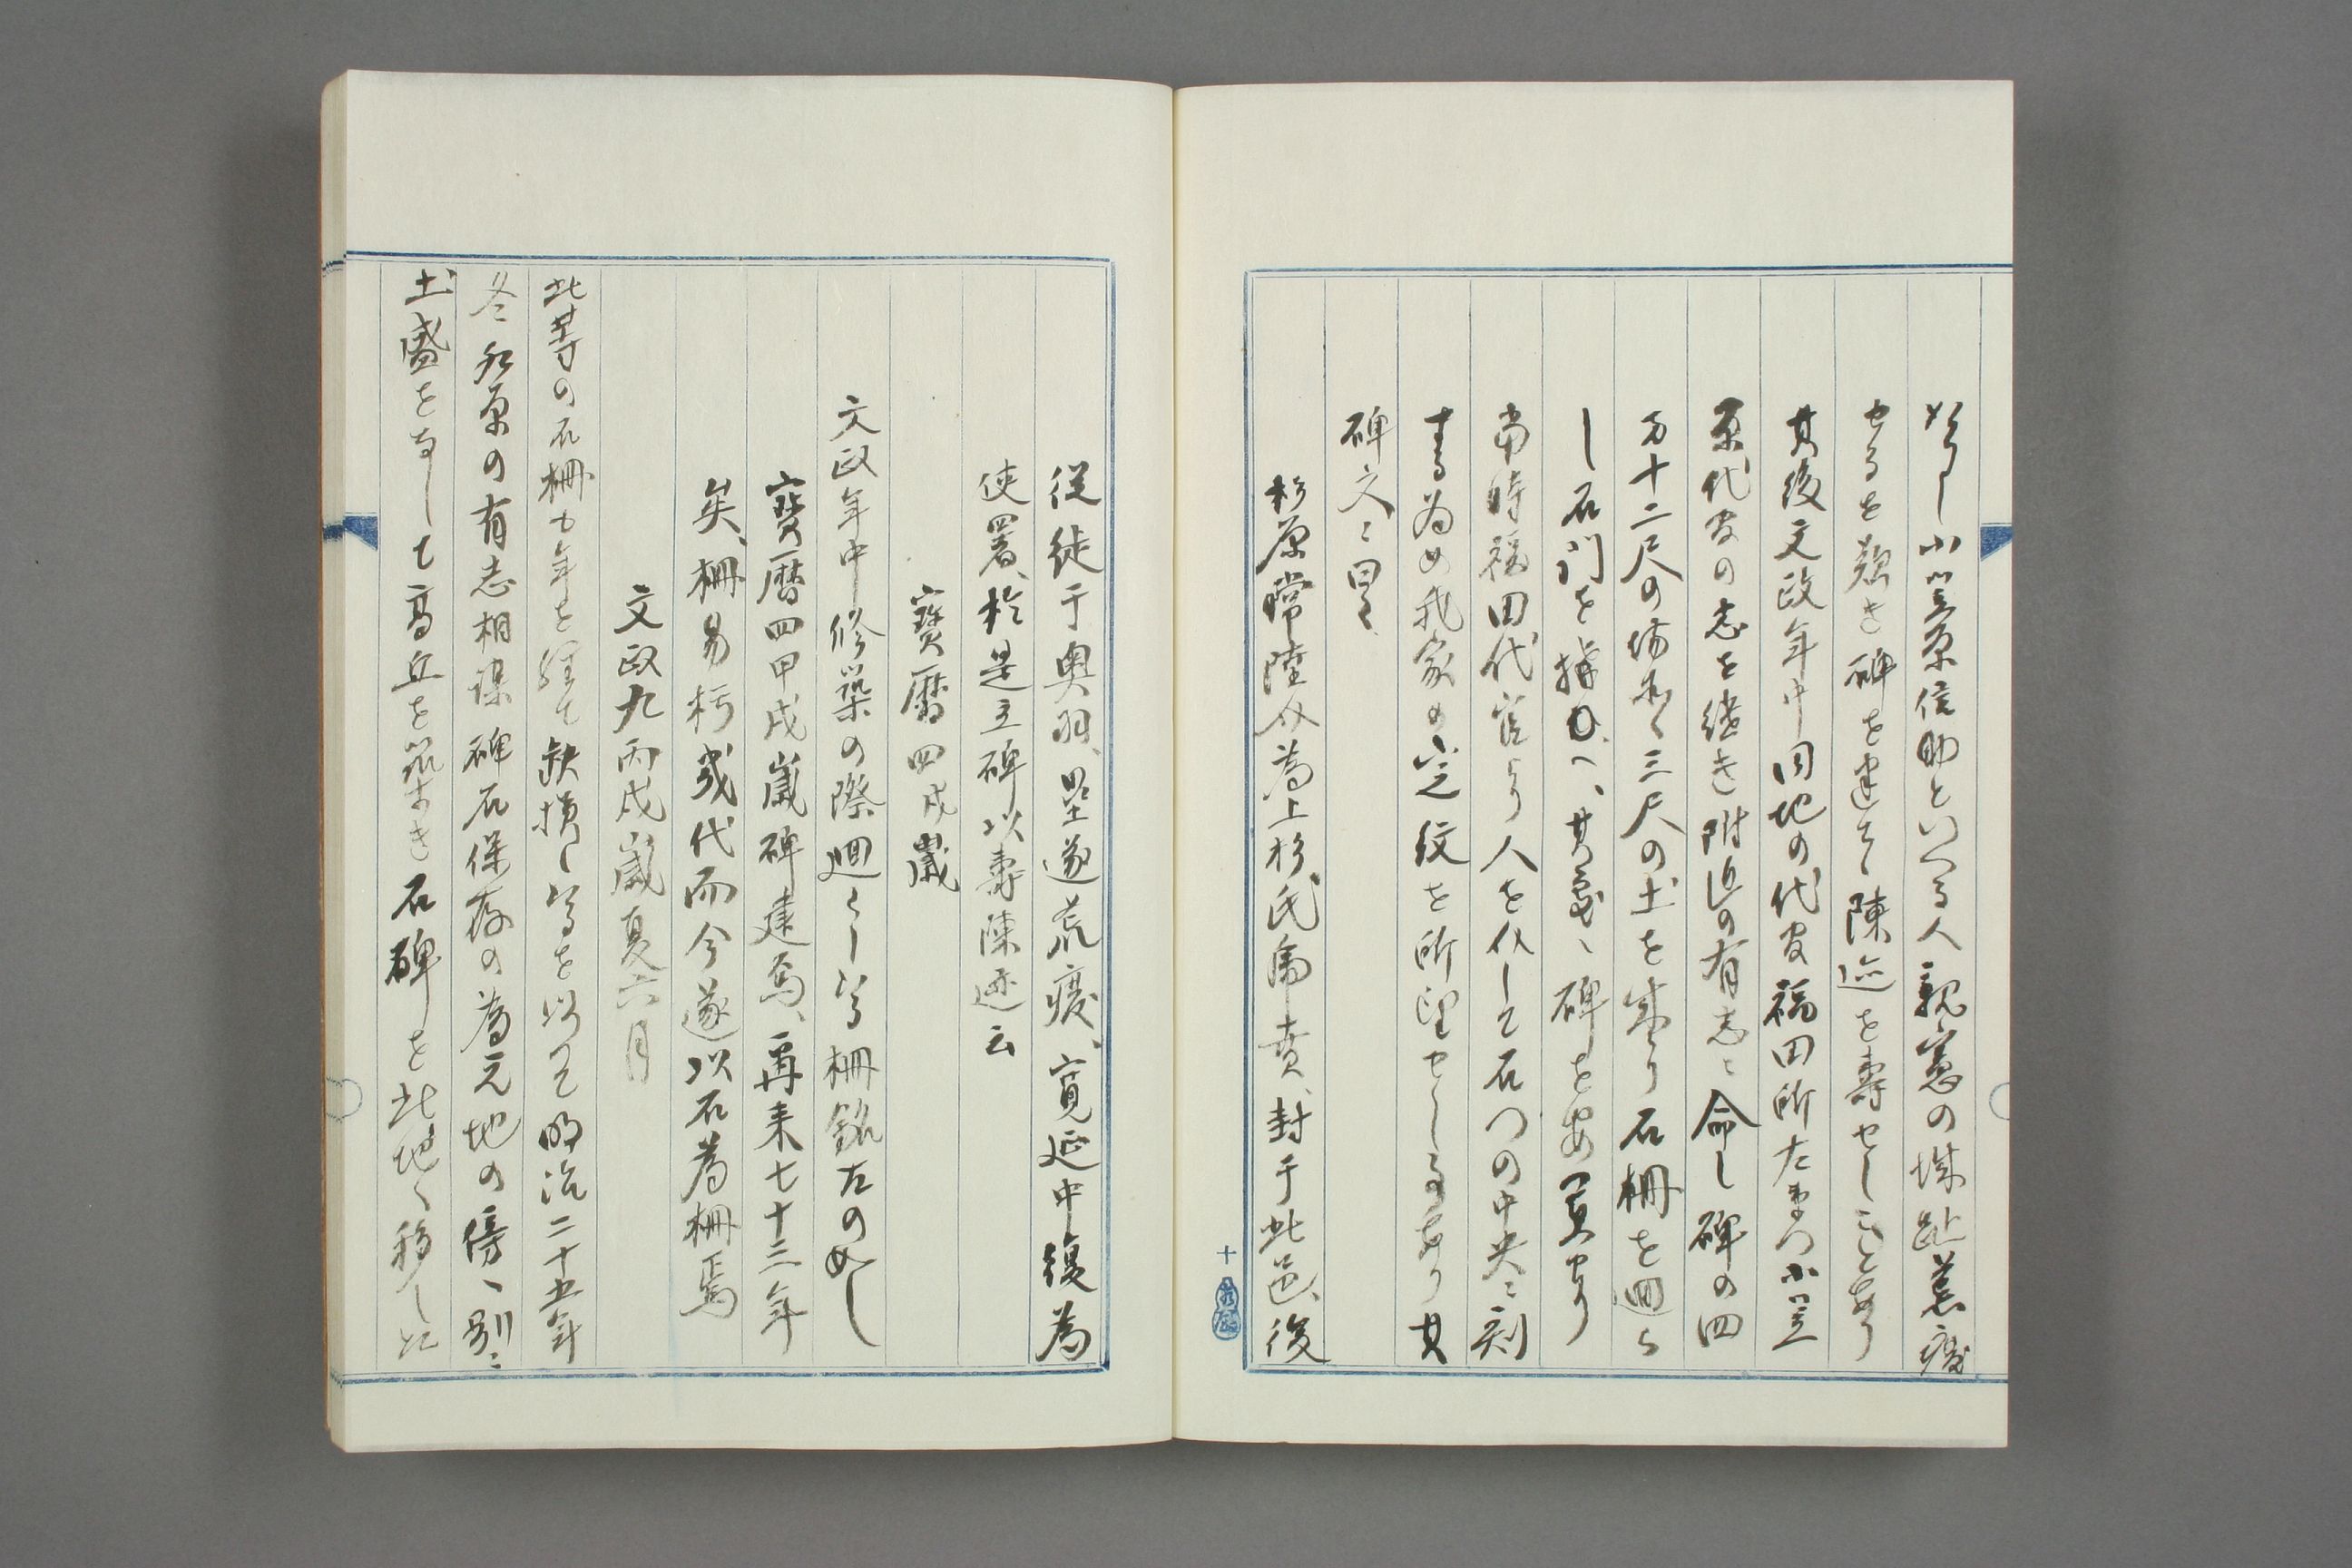 なりし小笠原信助といへる人親憲の城趾荒廢
せるを歎き碑を建て陳迹を壽せしことあり
其後文政年中同地の代官福田所左衛門小笠
原代官の志を継き附近の有志に命し碑の四
方十二尺の場所へ三尺の土を盛り石柵を廻ら
し石門を構ひ
當時福田代官より人を以して石門の中央に刻
する為め我家の定紋を所望せしるあり其
碑文に曰く
杉原常陸介為上杉氏虎賁、封于此邑、後
従徒于奥羽、塁遂荒廢、寛延中復為
使署、於是立碑以壽陳迹云
寶暦四戌歳
文政年中修築の際廻らし等柵銘左の如し
寶暦四甲戌歳碑建焉、再来七十三年
矣、柵易朽或代而今遂以石為柵焉
文政九丙戌歳夏六月
此等の石柵も年を経て缺損し等を以て明治二十五年
冬水原の有志相謀碑石保存の為元地の傍へ別に
土盛をなして高丘を築き石碑を此地へ移し
十